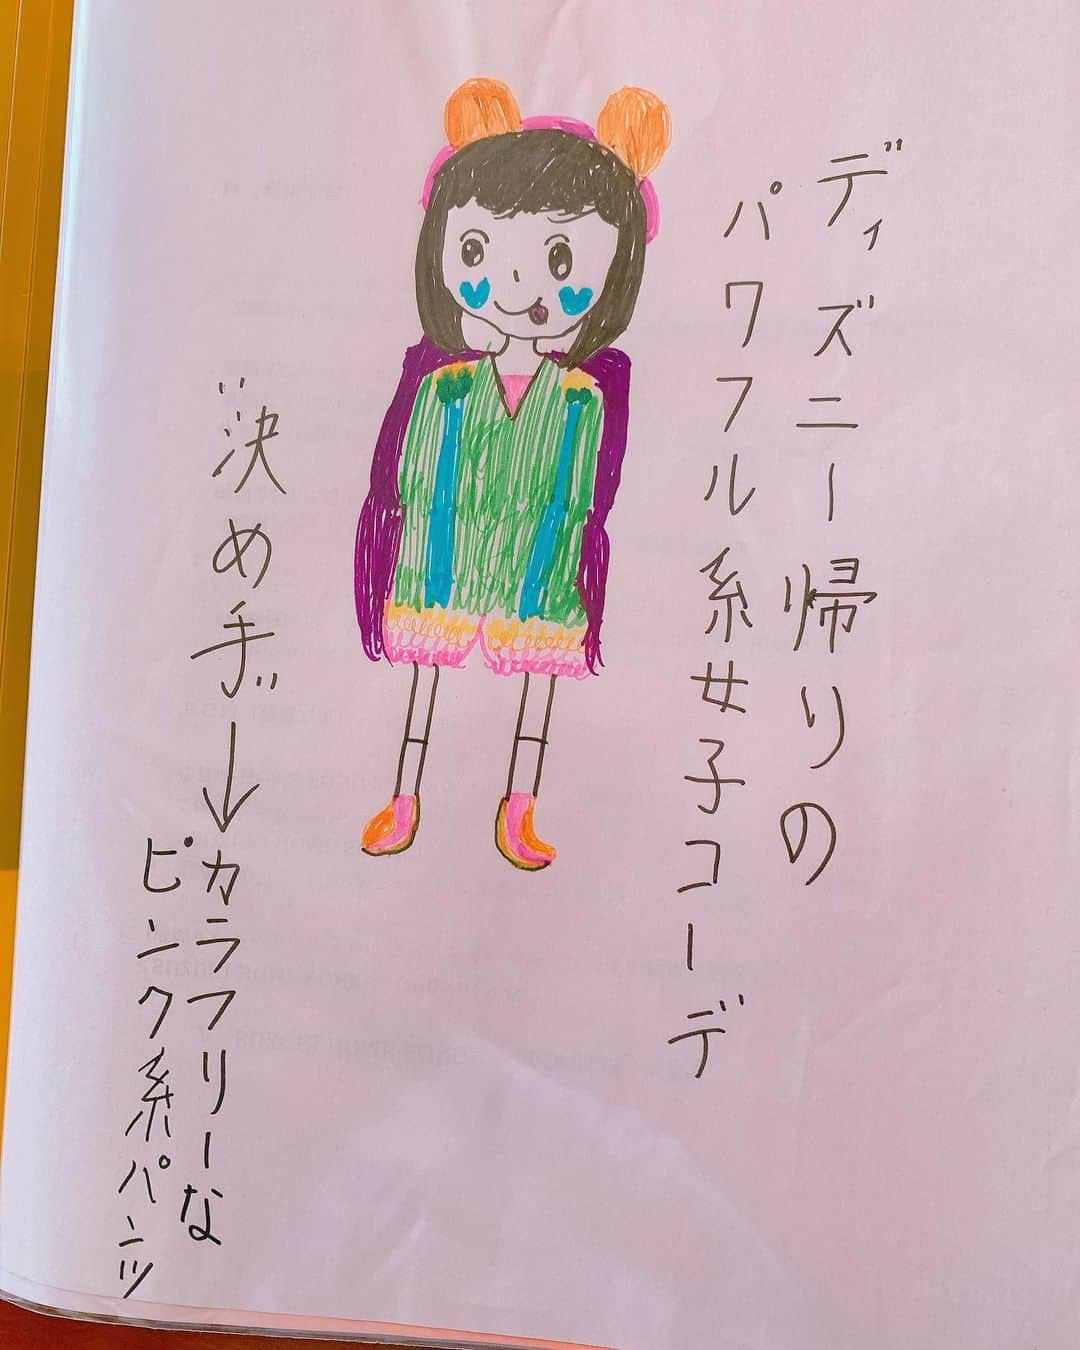 ディズニー帰りの
パワフル系女子コーデ
"決め手"→カラフリーな
ピンク系パンツ